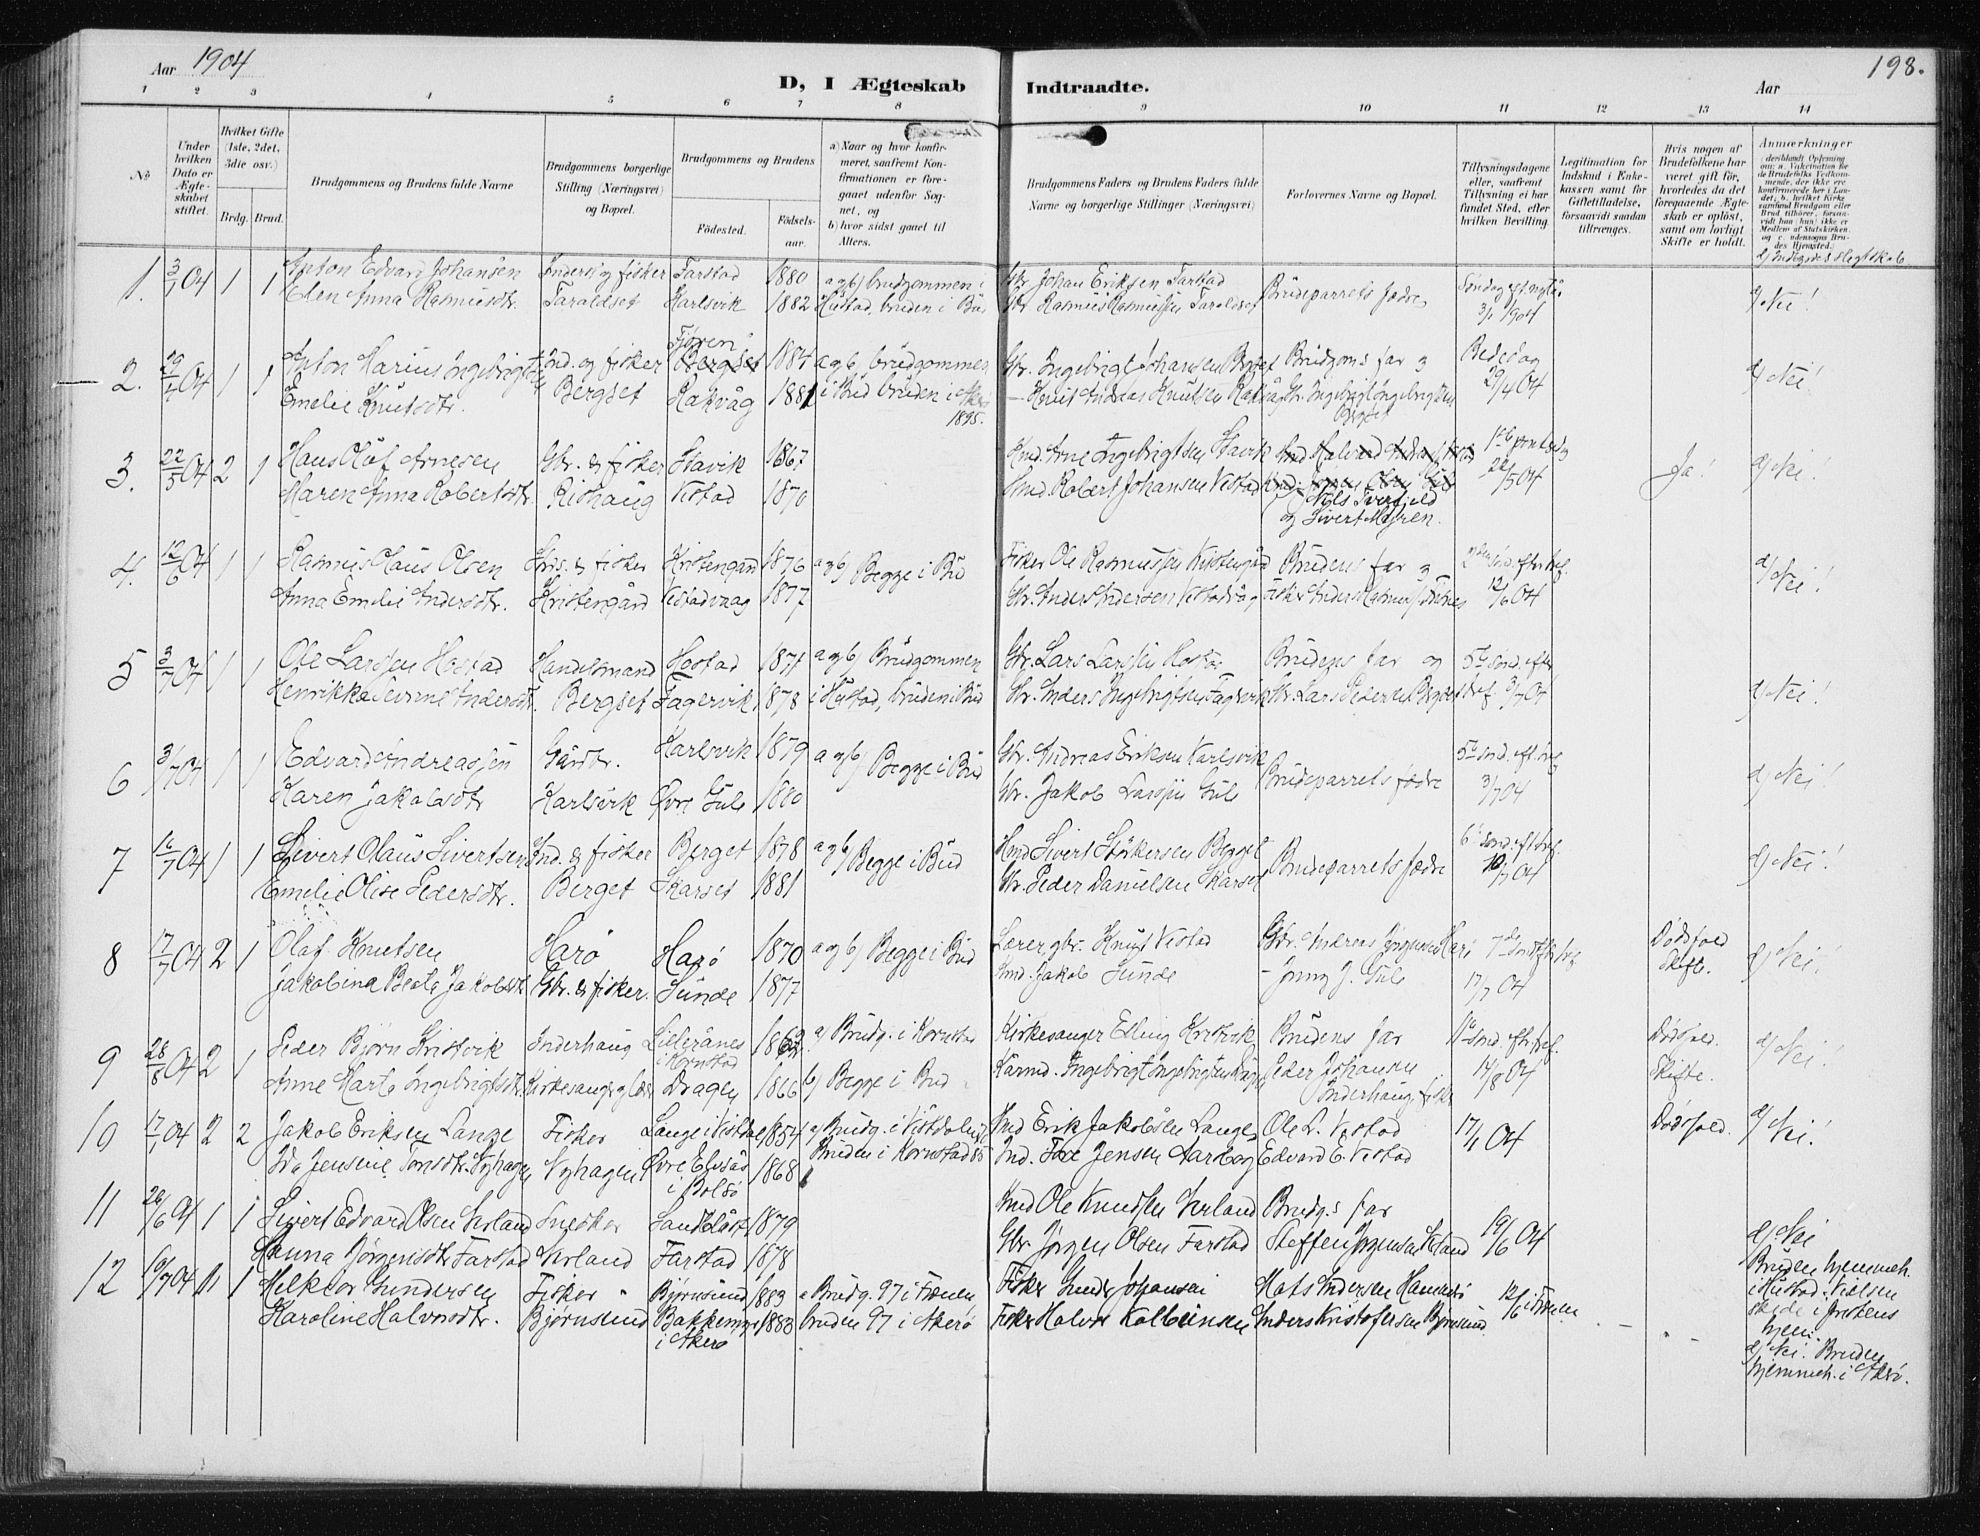 Aar 1904
D, I Ægteskab Indtraadte.
Aar
198.
1 2 3 4 5 6 7 8 9 10 11 12 13 14
No
Under hvilken Dato er Ægteskabet stiftet.
Hvilket Gifte (1ste, 2det, 3die osv.)
Brdg. Brud.
Brudgommens og Brudens fulde Navne
Brudgommens borgerlige Stilling (Næringsvei) og Bopæl.
Brudgommens og Brudens
Fødested. Fødsels-aar.
a) Naar og hvor konfirmeret, saafremt Konfirmationen er foregaaet udenfor Sognet, og
b) hvor sidst gaaet til Alters.
Brudgommens Faders og Brudens Faders fulde Navne og borgerlige Stillinger (Næringsvei)
Forlovernes Navne og Bopæl.
Tillysningsdagene eller, saafremt Tillysning ei har fundet Sted, efter hvilken Bevilling.
Legitimation for Indskud i Enkekassen samt for Giftetilladelse, forsaavidt saadan tiltrænges.
Hvis nogen af Brudefolkene har været gift før, hvorledes da det foregaaende Ægteskab er opløst, samt om lovligt Skifte er holdt.
Anmærkninger
1. 3/1 04 1 1 Anton Edvard Johansen Inders. og fisker Farstad 1880 a og b) brudgommen i Gbr. Johan Eriksen Farstad Brudeparrets fædre Søndag eft. nytår d/ Nei!
Elen Anna Rasmusdtr. Taraldset Karlsvik 1882 Hustad, bruden i Bud Gbr. Rasmus Rasmussen Taraldset 3/1 1904
2. 29/4 04 1 1 Anton Marius Ingebrigtsen Ind. og fisker Bergset 1884 a og b. brudgommen Gbr. Ingebrigt Johansen Bergset Brudgoms far og Bededag d/ Nei!
Emelie Knutsdtr. Bergset Rakvåg 1881 i Bud bruden i Akerø 1895. Knut Andreas Knutsen Rakvåg Gbr. Ingebrigt Ingebrigtsen Bergset 29/4 04
3. 22/5 04 2 1 Hans Olaf Arnesen Gbr. & fisker Stavik 1867 Hmd. Arne Ingebrigtsen Stavik 1ste pinsedag Ja! d/ Nei!
Maren Anna Robertsdtr. Rishaug Vestad 1870 Hmd. Robert Johansen Vestad Nils Tverfjeld og Sivert Myren. 22/5 04
4. 12/6 04 1 1 Rasmus Olaus Olsen Hus. & fisker Kristengård 1876 a og b) Begge i Bud Fisker Ole Rasmussen Kristengård Brudens far og 2den sønd. eftr tref. d/ Nei!
Anna Emelie Andersdtr. Kristengård Vestadvaag 1877 Gbr. Anders Andersen Vestadvåg fisker Anders Rasmussen 12/6 04
5 3/7 04 1 1 Ole Larssen Hostad Handelsmand Hostad 1871 a og b) Brudgommen Gbr. Lars Larssen Hostad Brudens far og 5te sønd. eftr
Henrikka Severine Andersdtr. Bergset Fagervik 1878 i Hustad, bruden i Bud Gbr. Anders Ingebrigtsen Fagervik Gbr. Lars Pedersen Bergset tref 3/7 04 d/ Nei!
6 3/7 04 1 1 Edvard Andreassen Gårdbr. Karlsvik 1879 a og b) Begge i Bud Gbr. Andreas Eriksen Karlsvik Brudeparrets fædre 5te sønd. eft. tref d/ Nei!
Karen Jakobsdtr Karlsvik Øvre Gule 1880 Gbr. Jakob Larssen Gule 3/7 04
7 10/7 04 1 1 Sivert Olaus Sivertsen Ind. & fisker Berget 1878 a og b) Begge i Bud Hmd Sivert Styrkersen Berget Brudeparrets fædre 6te sønd. eft tref. d/ Nei!
Emelie Olise Pedersdtr. Berget Skarset 1881 Gbr. Peder Danielsen Skarset 10/7 04
8 17/7 04 2 1 Olaf Knutsen Harø Harø 1870 a og b) Begge i Bud Lærer, gbr. Knut Vestad Gbr. Andreas Jørgensen Harø 7de sønd eftr tref Dødsfald d/ Nei!
Jakobine Beate Jakobsdtr Gbr. & fisker. Sunde 1877 Hmd. Jakob Sunde - Jenny J. Gule 17/7 04 Skift.
9 28/8 04 2 1 Peder Bjørn Kristvik Inderhaug Lillerånes i Kornstad 1862 a) Brudg. i Kornstad Kirkesanger Elling Kristvik Brudens far 11te sønd. eftr tref. Dødsfald. d/ Nei!
Anne Marta Ingebrigtsdtr. Kirkesanger og lærer Dragen 1866 b) Begge i Bud Ingebrigt Ingebrigtsen Peder Johansen Inderhaug, fisker 14/8 04 Skifte.
10 17/1 04 2 2 Jakob Eriksen Lange Fisker Lange i Vistdal 1854 a) Brudg. i Vistdalen Hmd Erik Jakobsen Lange Ole L. Vestad 17/1 04 Dødsfald. d/ Nei!
Ida Jensine Tomsdtr. Nyhagen Nyhagen Øvre Elvsås i Bolsø 1868 Bruden i Kornstad 85 Ind. Jensen Edvard E. Vestad
11 26/6 04 1 1 Sivert Edvard Olsen Verland Snedker Sandblåst 1879 Hmd Ole Knudsen Verland Brudg.s far 19/6 04
Hanna Jørgensdtr Farstad Verland Farstad 1878 Gbr. Jørgen Olsen Farstad Steffen Jørgensen Verland d/ Nei
Bruden hjemmeh. i Hustad. Vielsen skede i prestens hjem.
12 10/7 04 1 1 Melkior Gundersen Fisker Bjørnsund 1883 a Brudg. 97 i Frænen Fisker Gunder Johansen Mats Andersen Hammerø 12/6 i Frænen
Karoline Halvorsdtr. Bjørnsund Bakkemyr i Akerø 1883 bruden 97 i Akerø Fisker Halvor Kolbeinsen Anders Kristofersen Bjørnsund
d/ Nei. Bruden hjemmeh. i Akerø.